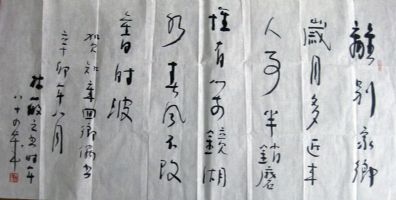 離別家鄉
歲月多近來
人事半銷磨
惟有門前鏡湖
水春風不改
舊時波
賀知章回鄉偶書
辛卯年八月
時年
八十四